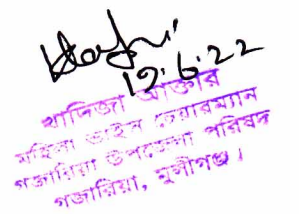 ১৯.৬.২২
খাদিজা আক্তার
মহিলা ভাইস চেয়ারম্যান
গজারিয়া উপজেলা পরিষদ
গজারিয়া, মুন্সীগঞ্জ।